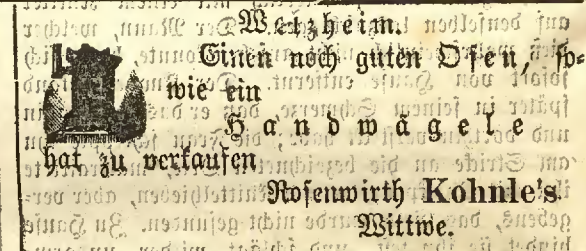 Welzheim.
Einen noch guten Ofen, so-
wie ein
Handwägele
hat zu verkaufen
Rosenwirth Kohnle's
Wittwe.